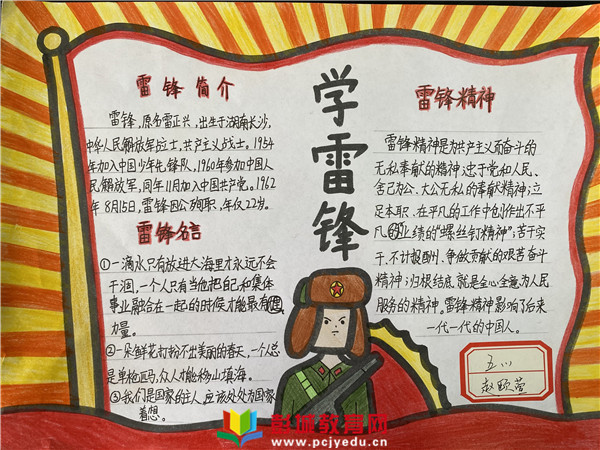 学雷锋
雷锋简介
雷锋,原名雷正兴,出生于湖南长沙,
中华人民解放军战士,共产主义战士。1954
年加入中国少年先锋队,1960年参加中国人
民解放军,同年11月加入中国共产党。1962
年8月15日,雷锋因公殉职,年仅22岁。
雷锋名言
①一滴水只有放进大海里才永远不会
干涸,一个人只有当他把自己和集体
事业融合在一起的时候才能最有
力量。
②一朵鲜花打扮不出美丽的春天,一个人总
是单枪匹马,众人才能移山填海。
③我们是国家的主人,应该处处为国家
着想。
雷锋精神
雷锋精神是为共产主义而奋斗的
无私奉献的精神;忠于党和人民、
舍己为公、大公无私的奉献精神;立
足本职、在平凡的工作中创作出不平
凡业绩的“螺丝钉精神”;苦干实
干、不计报酬、争做贡献的艰苦奋斗
精神;归根结底,就是全心全意为人民
服务的精神。雷锋精神影响了后来
一代一代的中国人。
赵
彭城教育网
www.pcjyedu.cn